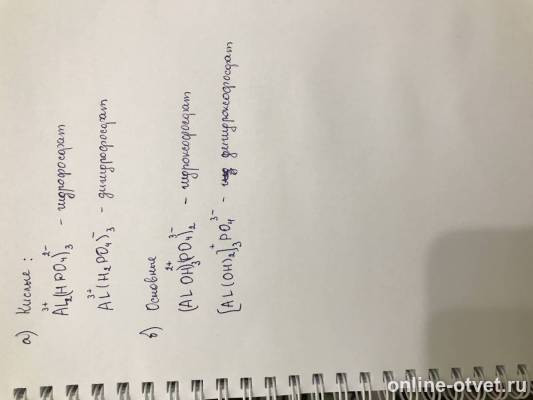 а) Кислые :
3+ 2-
Al2(HPO4)3 - гидрофосфат
3+ -
Al(H2PO4)3 - дигидрофосфат
б) Основные
2+ 3-
(AlOH)3(PO4)2 - гидроксофосфат
+ 3-
[Al(OH)2]3PO4 - дигидроксофосфат
online-otvet.ru